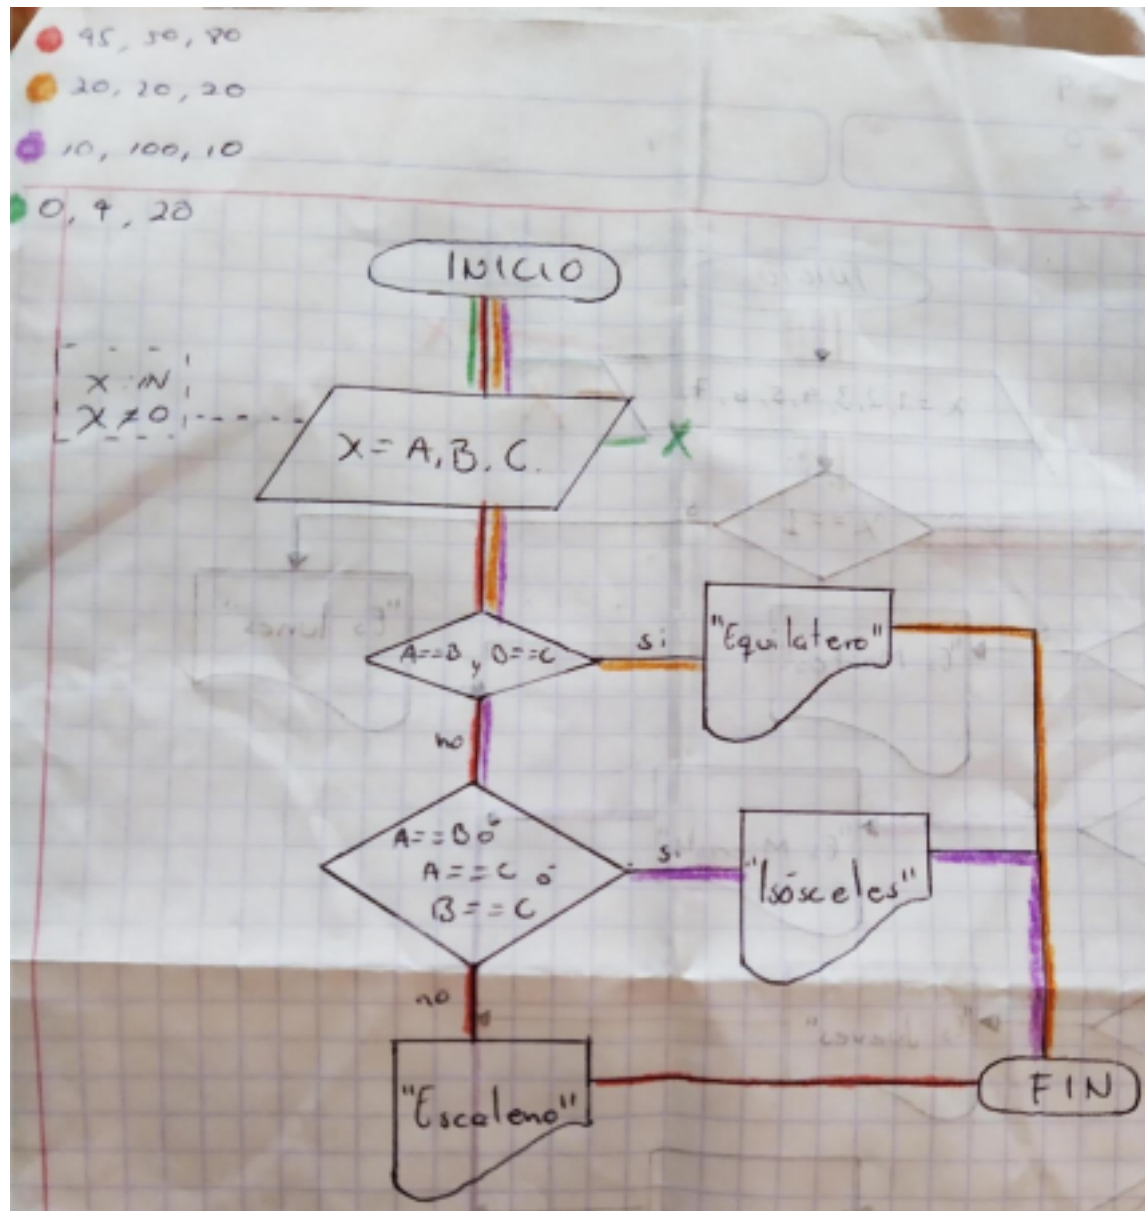 20, 20, 20
10, 100, 10
INICIO
X IN
X ≠ 0
X = A, B, C.
X
A==B y B==C
si
"Equilatero"
no
A==B ó
A==C ó
B==C
si
"Isósceles"
no
"Escaleno"
FIN